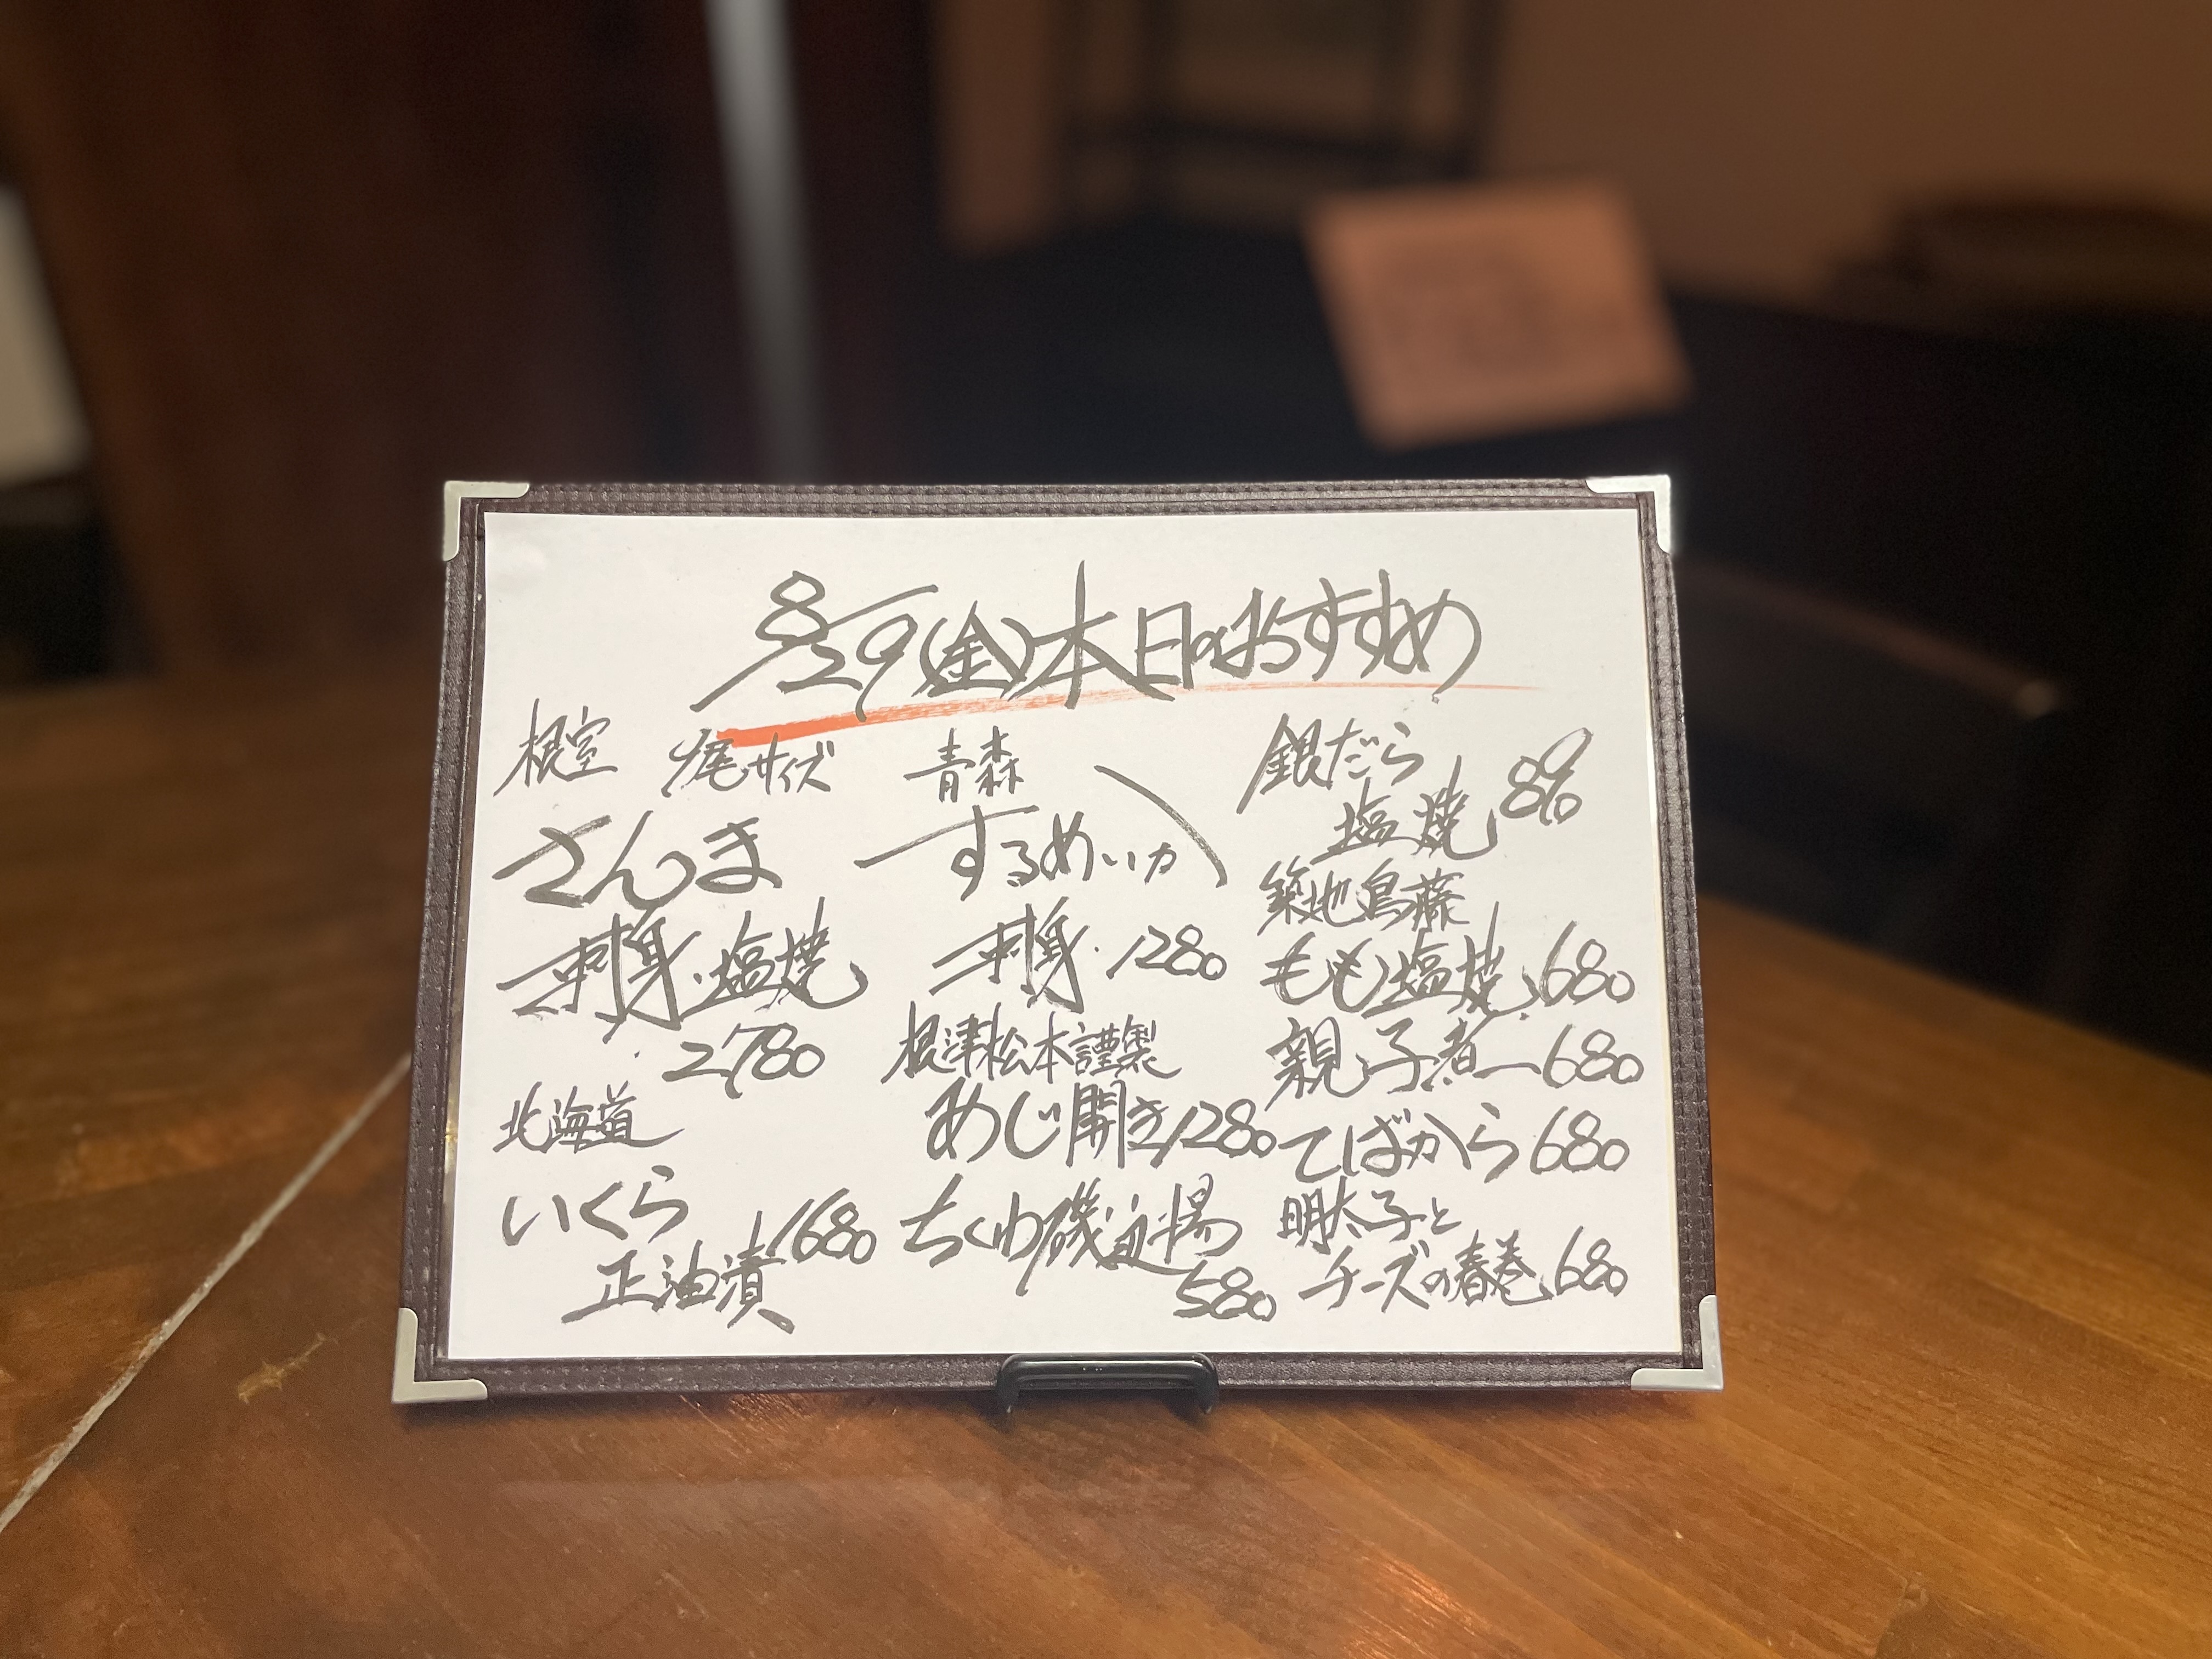 8/29(金)本日のおすすめ
根室
尾サイズ
さんま
刺身・塩焼
2780
北海道
いくら
正油漬
1680
青森
するめいか
刺身・1280
根津松本謹製
あじ開き1280
ちくわ磯辺揚
580
銀だら
塩焼
築地鳥藤
もも塩焼 680
親子煮 680
てばから 680
明太子と
チーズの春巻 680